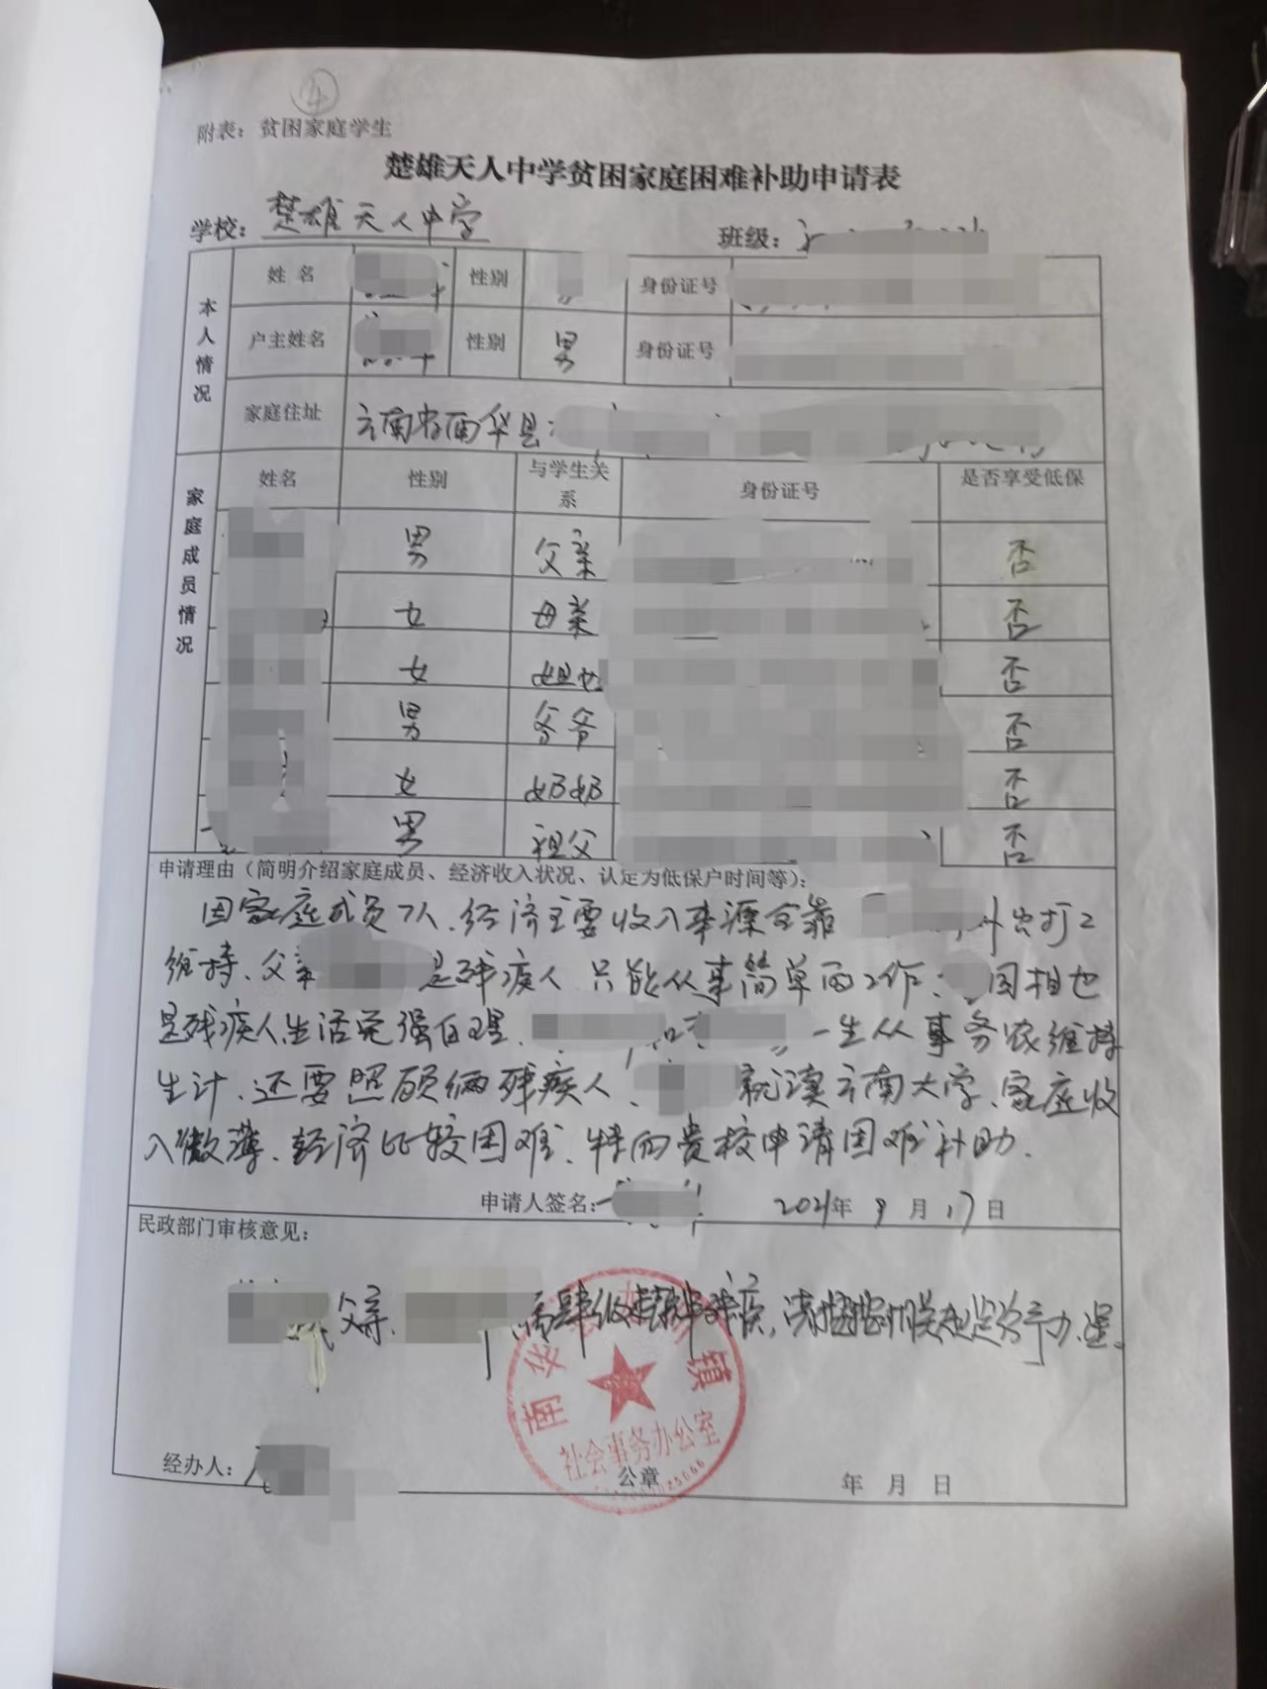 4
附表：贫困家庭学生
楚雄天人中学贫困家庭困难补助申请表
学校：楚雄天人中学 班级：
本人情况
姓名 性别 身份证号
户主姓名 性别 男 身份证号
家庭住址 云南省南华县
家庭成员情况
姓名 性别 与学生关系 身份证号 是否享受低保
男 父亲 否
女 母亲 否
女 姐姐 否
男 爷爷 否
女 奶奶 否
男 祖父 否
申请理由（简明介绍家庭成员、经济收入状况、认定为低保户时间等）：
因家庭成员7人、经济主要收入来源全靠 外出打工
维持、父亲 是残疾人 只能从事简单的工作、 祖也
是残疾人生活勉强自理、 和 一生从事务农维持
生计、还要照顾俩残疾人、 就读云南大学、家庭收
入微薄、经济比较困难、特向贵校申请困难补助.
申请人签名： 2021年9月17日
民政部门审核意见：
父亲、 属肆级 残疾，请 相关 给予办理。
南华 镇
社会事务办公室
经办人： 公章 年 月 日